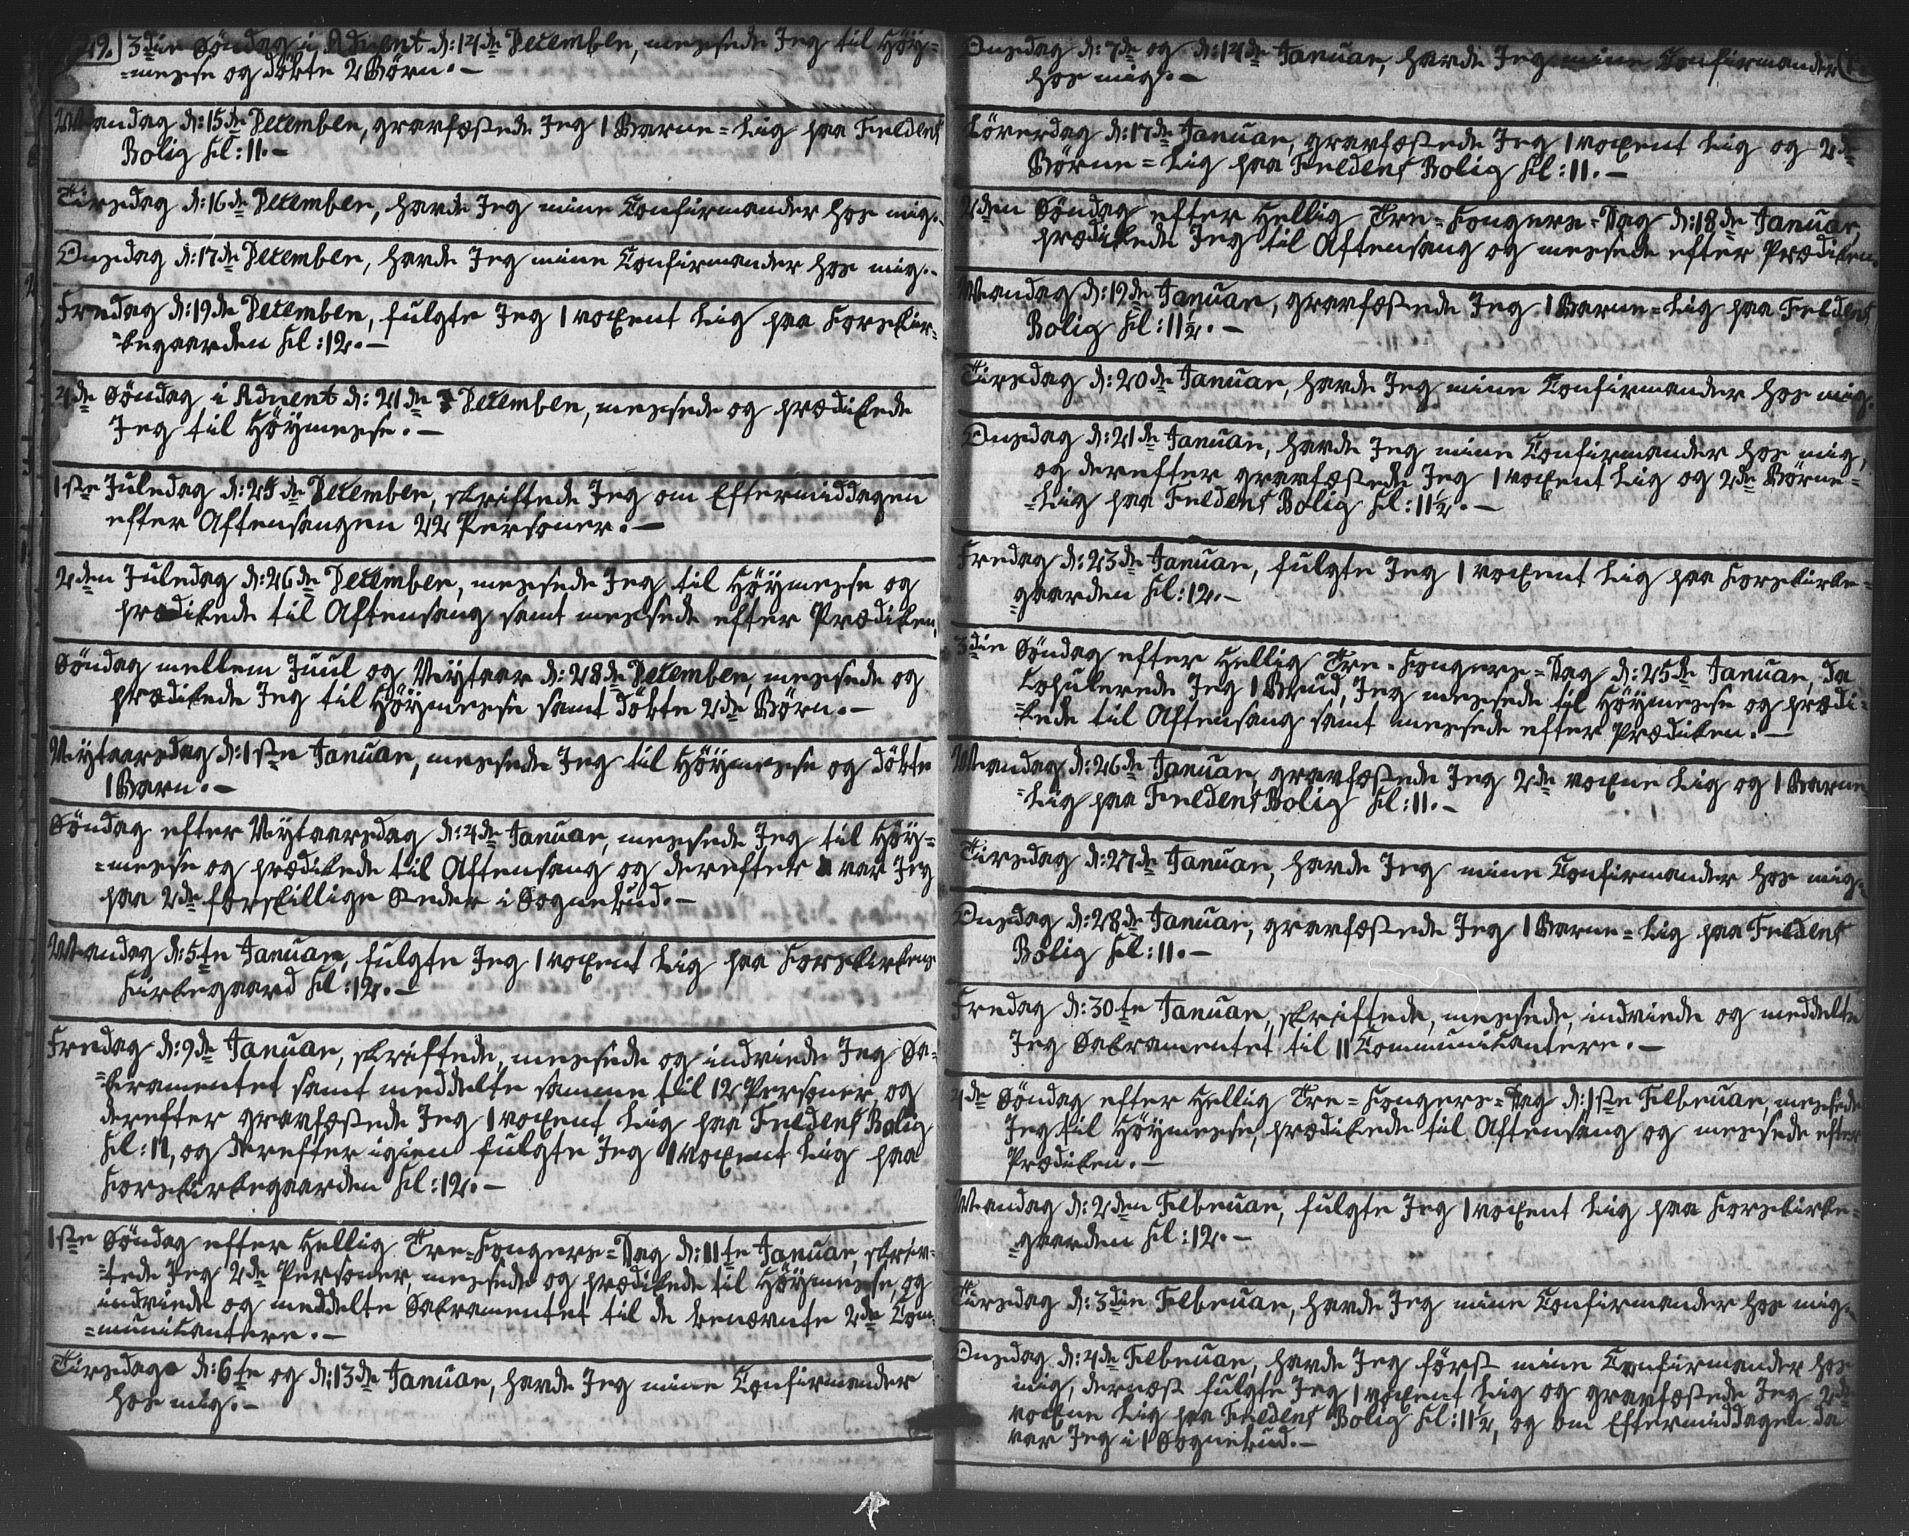 29. 3die Söndag i Advent d: 14de December, messede Jeg til Höy=
=messe og döbte 2 Börn. —
Mandag d: 15de December, gravfæstede Jeg 1 Barne=Lig paa Freldens
Bolig Kl: 11. —
Tirsdag d: 16de December, havde Jeg mine Confirmander hos mig. —
Onsdag d: 17de December, havde Jeg mine Confirmander hos mig. —
Fredag d: 19de December, fulgte Jeg 1 voxent Lig paa Korskir=
=kegaarden Kl: 12. —
4de Söndag i Advent d: 21de December, messede og prædikede
Jeg til Höymesse. —
1ste Juledag d: 25de December, skriftede Jeg om Eftermiddagen
efter Aftensangen 22 Personer. —
2den Juledag d: 26de December, messede Jeg til Höymesse og
prædikede til Aftensang samt messede efter Prædiken.
Söndag mellem Juul og Nÿtaar d: 28de December, messede og
prædikede Jeg til Höÿmesse samt döbte 2de Börn. —
Nÿtaarsdag d: 1ste Januar, messede Jeg til Höÿmesse og döbte
1 Barn. —
Söndag efter Nÿtaarsdag d: 4de Januar, messede Jeg til Höÿ=
=messe og prædikede til Aftensang og derefter var Jeg
paa 2de forskillige Steder i Sognebud. —
Mandag d: 5te Januar, fulgte Jeg 1 voxent Lig paa Korskirkens
Kirkegaard Kl: 12. —
Fredag d: 9de Januar, skriftede, messede og indviede Jeg Sa=
=kramentet samt meddelte samme til 12 Personer, og
derefter gravfæstede Jeg 1 voxent Lig paa Freldens Bolig
Kl: 11, og derefter igien fulgte Jeg 1 voxent Lig paa
Korskirkegaarden Kl: 12. —
1ste Söndag efter Hellig Tre=Kongers=Dag d: 11te Januar, skriv=
=tede Jeg 2de Personer, messede og prædikede til Höÿmesse, og
indviede og meddelte Sakramentet til de benævnte 2de Com=
=municantere. —
Tirsdag d: 6te og d: 13de Januar, havde Jeg mine Confirmander
hos mig. —
Onsdag d: 7de og d: 14de Januar, havde Jeg mine Confirmander
hos mig. —
Löverdag d: 17de Januar, gravfæstede Jeg 1 voxent Lig og 2de
Börne=Lig paa Freldens Bolig Kl: 11. —
2den Söndag efter Hellig Tre=Kongers=Dag d: 18de Januar,
prædikede Jeg til Aftensang og messede efter Prædiken.
Mandag d: 19de Januar, gravfæstede Jeg 1 Barne=Lig paa Freldens
Bolig Kl: 11½. —
Tirsdag d: 20de Januar, havde Jeg mine Confirmander hos mig.
Onsdag d: 21de Januar, havde Jeg mine Confirmander hos mig,
og derefter gravfæstede Jeg 1 voxent Lig og 2de Börne=
=Lig paa Freldens Bolig Kl: 11½. —
Fredag d: 23de Januar, fulgte Jeg 1 voxent Lig paa Korskirke=
=gaarden Kl: 12. —
3die Söndag efter Hellig Tre=Kongers=Dag d: 25de Januar, da
Copulerede Jeg 1 Brud, Jeg messede til Höÿmesse og prædi=
=kede til Aftensang samt messede efter Prædiken. —
Mandag d: 26de Januar, gravfæstede Jeg 2de voxne Lig og 1 Barne
=Lig paa Freldens Bolig Kl: 11. —
Tirsdag d: 27de Januar, havde Jeg mine Confirmander hos mig. —
Onsdag d: 28de Januar, gravfæstede Jeg 1 Barne=Lig paa Freldens
Bolig Kl: 11. —
Fredag d: 30te Januar, skriftede, messede, indviede og meddelte
Jeg Sakramentet til 11 Communicantere. —
4de Söndag efter Hellig Tre=Kongers=Dag d: 1ste Februar, messede
Jeg til Höÿmesse, prædikede til Aftensang og messede efter
Prædiken. —
Mandag d: 2den Februar, fulgte Jeg 1 voxent Lig paa Korskirke=
=gaarden Kl: 12. —
Tirsdag d: 3die Februar, havde Jeg mine Confirmander hos mig. —
Onsdag d: 4de Februar, havde Jeg först mine Confirmander hos
mig, dernæst fulgte Jeg 1 voxent Lig og gravfæstede Jeg 2de
voxne Lig paa Freldens Bolig Kl: 11½, og om Eftermiddagen da
var Jeg i 1 Sognebud. —